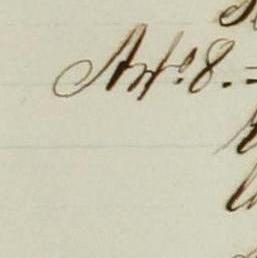 Art.º 8. =